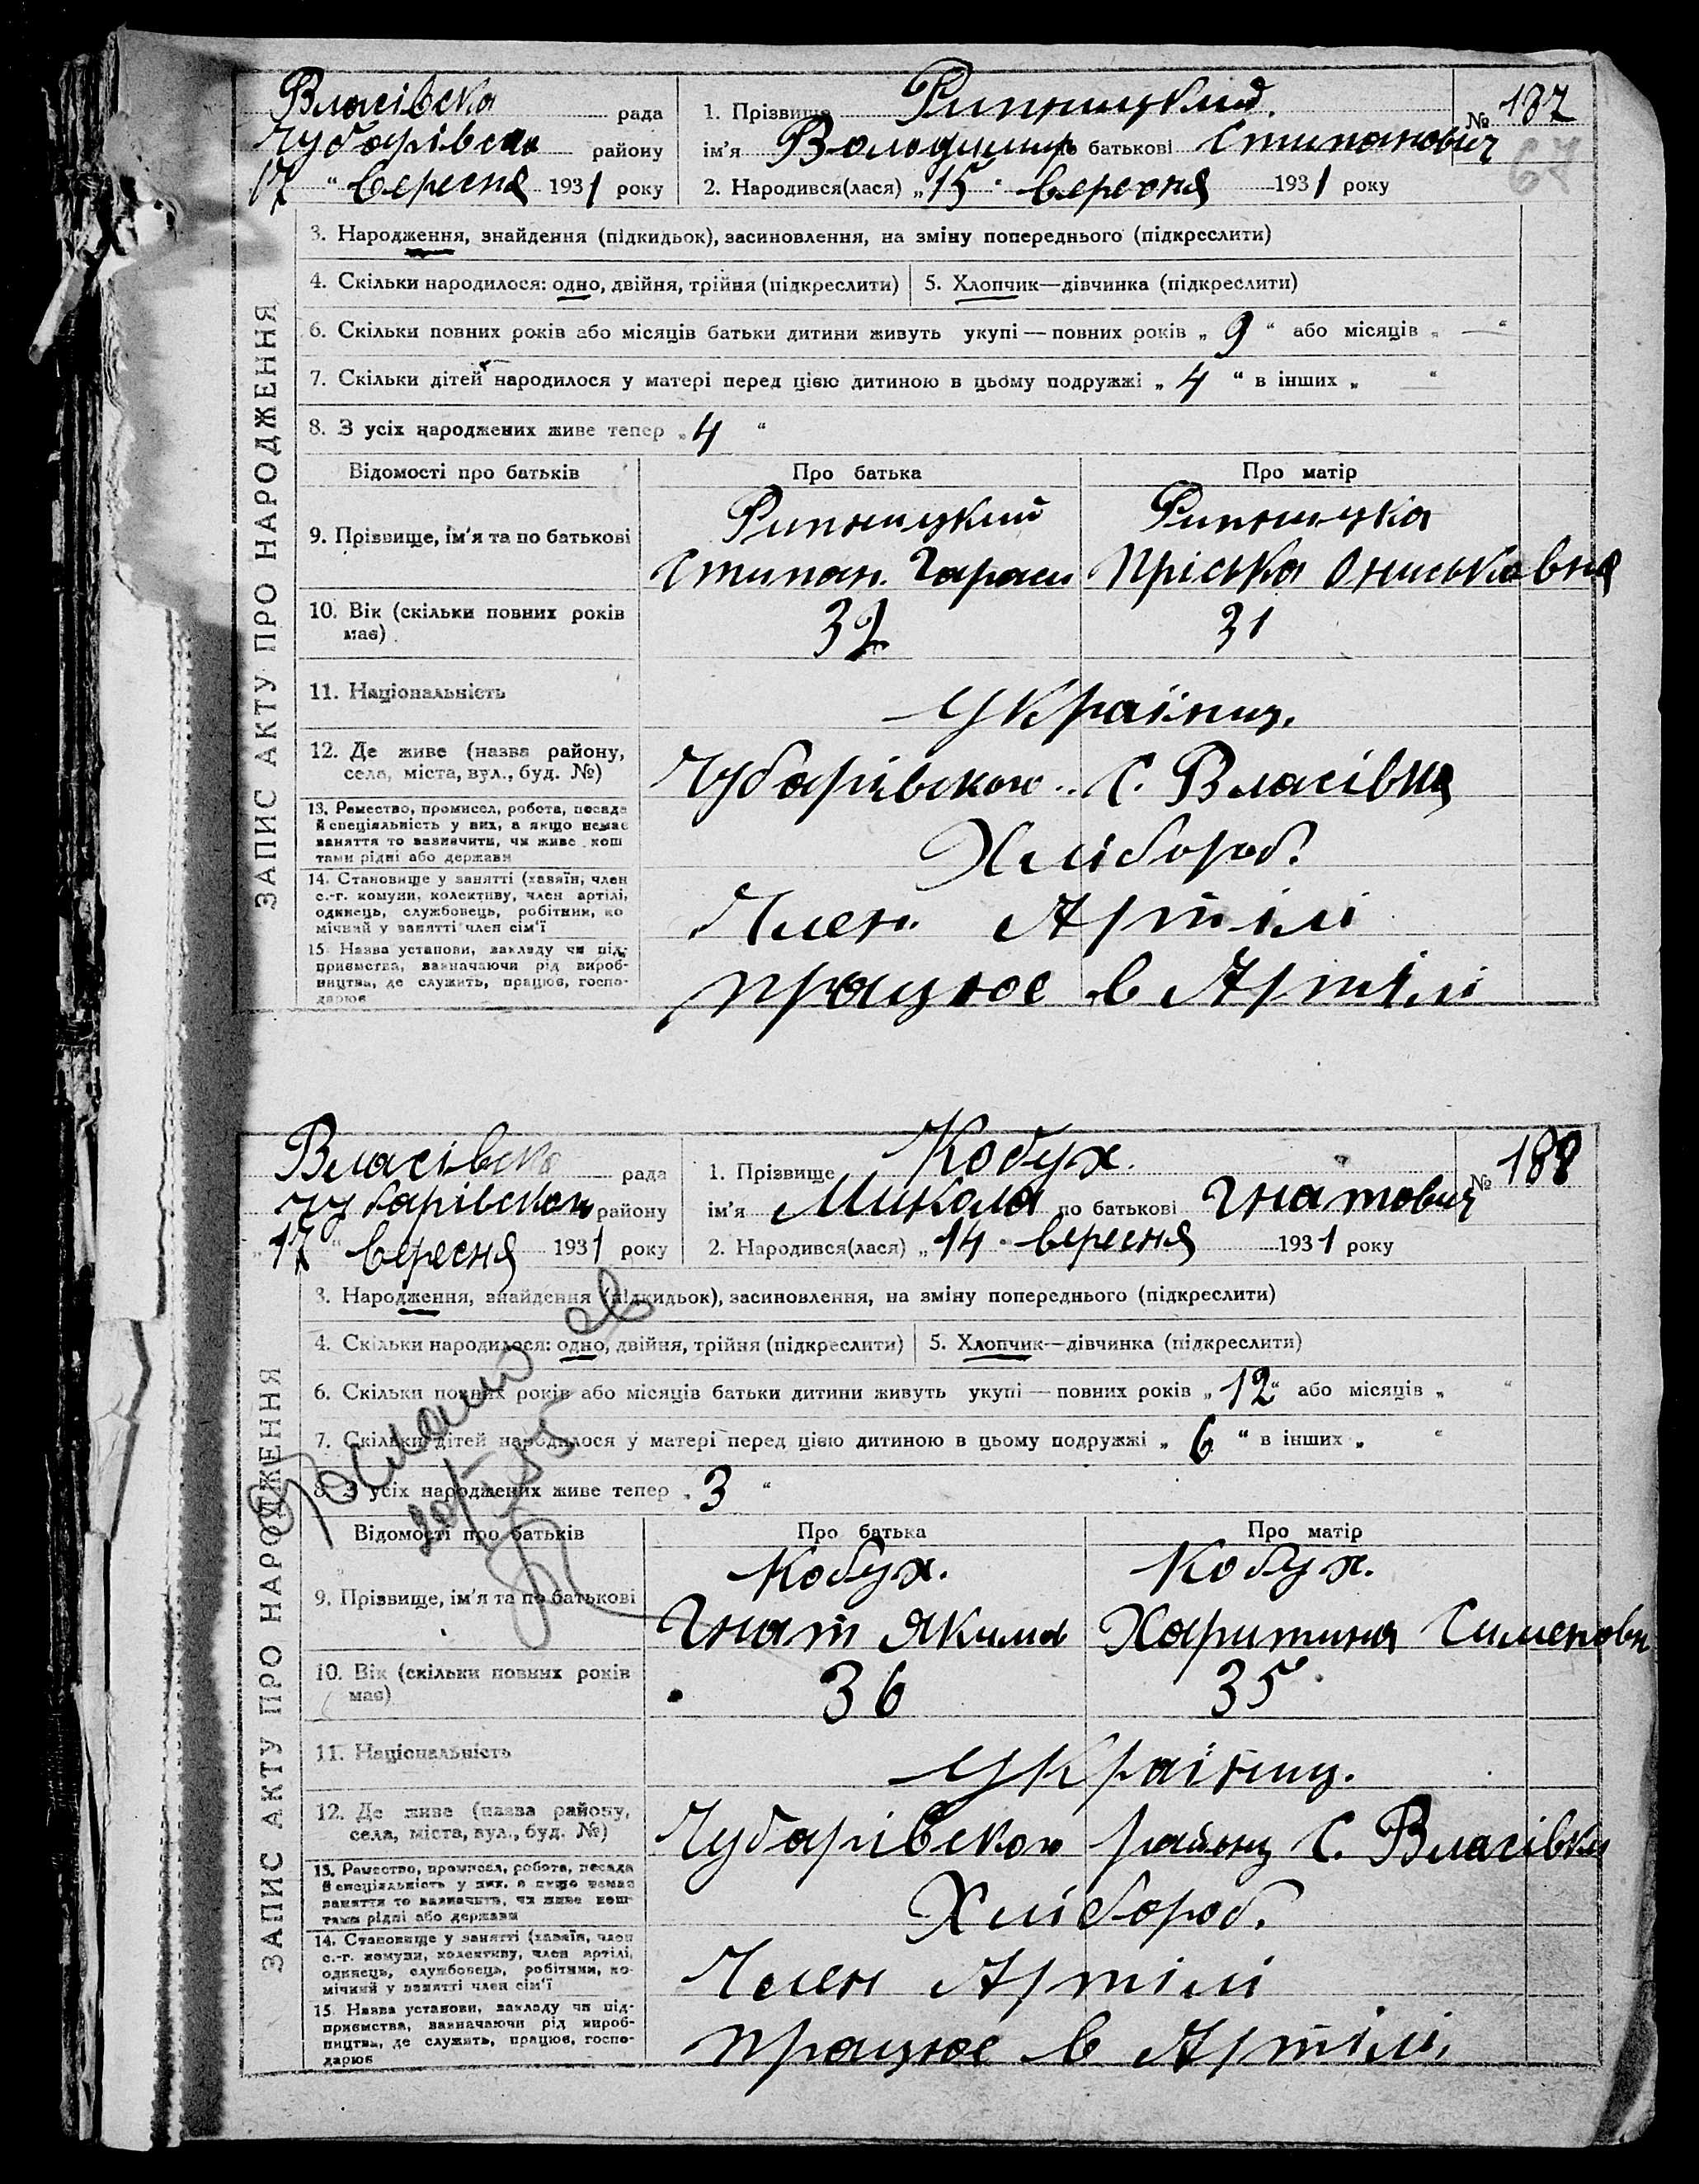 Власівська рада 1. Прізвище Рипницкий. № 187
Чубарівсько району ім'я Володимир по батькові Стипанович
17 " вересня 1931 року 2. Народився(лася) „15" вересня 1931 року
67
3. Народження, знайдення (підкидьок), засиновлення, на зміну попереднього (підкреслити)
4. Скільки народилося: одно, двійня, трійня (підкреслити) 5. Хлопчик—дівчинка (підкреслити)
6. Скільки повних років або місяців батьки дитини живуть укупі — повних років „ 9 " або місяців „ — "
7. Скільки дітей народилося у матері перед цією дитиною в цьому подружжі „ 4 " в інших „ — "
8. З усіх народжених живе тепер „ 4 "
ЗАПИС АКТУ ПРО НАРОДЖЕННЯ
Відомості про батьків Про батька Про матір
9. Прізвище, ім'я та по батькові Рипницкий Рипницка
Стипан. Тараси Пріська Ониськовна
10. Вік (скільки повних років має) 32 31
11. Національність Українц.
12. Де живе (назва району, села, міста, вул., буд. №) Чубарівсько.. С. Власівка
13. Ремество, промисел, робота, посада й спеціяльність у них, а якщо немає заняття то зазначити, чи живе кош тами рідні або держави Хлібороб.
14. Становище у занятті (хазяїн, член с.-г. комуни, колективу, член артілі, одинець, службовець, робітник, по мічний у занятті член сім'ї Член Артілі
15. Назва установи, закладу чи під- приємства, зазначаючи рід вироб- ництва, де служить, працює, госпо- дарює працює в Артілі
Власівсько рада 1. Прізвище Кобух. № 188
Чубарівского району ім'я Микола по батькові Гнатович
„ 17 " вересня 1931 року 2. Народився(лася) „14" вересня 1931 року
3. Народження, знайдення (підкидьок), засиновлення, на зміну попереднього (підкреслити)
4. Скільки народилося: одно, двійня, трійня (підкреслити) 5. Хлопчик—дівчинка (підкреслити)
6. Скільки повних років або місяців батьки дитини живуть укупі — повних років „ 12 " або місяців „ "
7. Скільки дітей народилося у матері перед цією дитиною в цьому подружжі „ 6 " в інших „ "
8. З усіх народжених живе тепер „ 3 "
ЗАПИС АКТУ ПРО НАРОДЖЕННЯ
Відомості про батьків Про батька Про матір
9. Прізвище, ім'я та по батькові Кобух. Кобух.
Гнат Якимов Харитина Сименовн
10. Вік (скільки повних років має) 36 35
11. Національність Українц.
12. Де живе (назва району, села, міста, вул., буд. №) Чубарівского району С. Власівки
13. Ремество, промисел, робота, посада й спеціяльність у них, а якщо немає заняття то зазначить, чи живе кош- тами рідні або держави Хлібороб.
14. Становище у занятті (хазяїн, член с.-г. комуни, колективу, член артілі, одинець, службовець, робітник, по- мічний у занятті член сім'ї Член Артілі
15. Назва установи, закладу чи під- приємства, зазначаючи рід вироб- ництва, де служить, працює, госпо- дарює працює в Артілі,